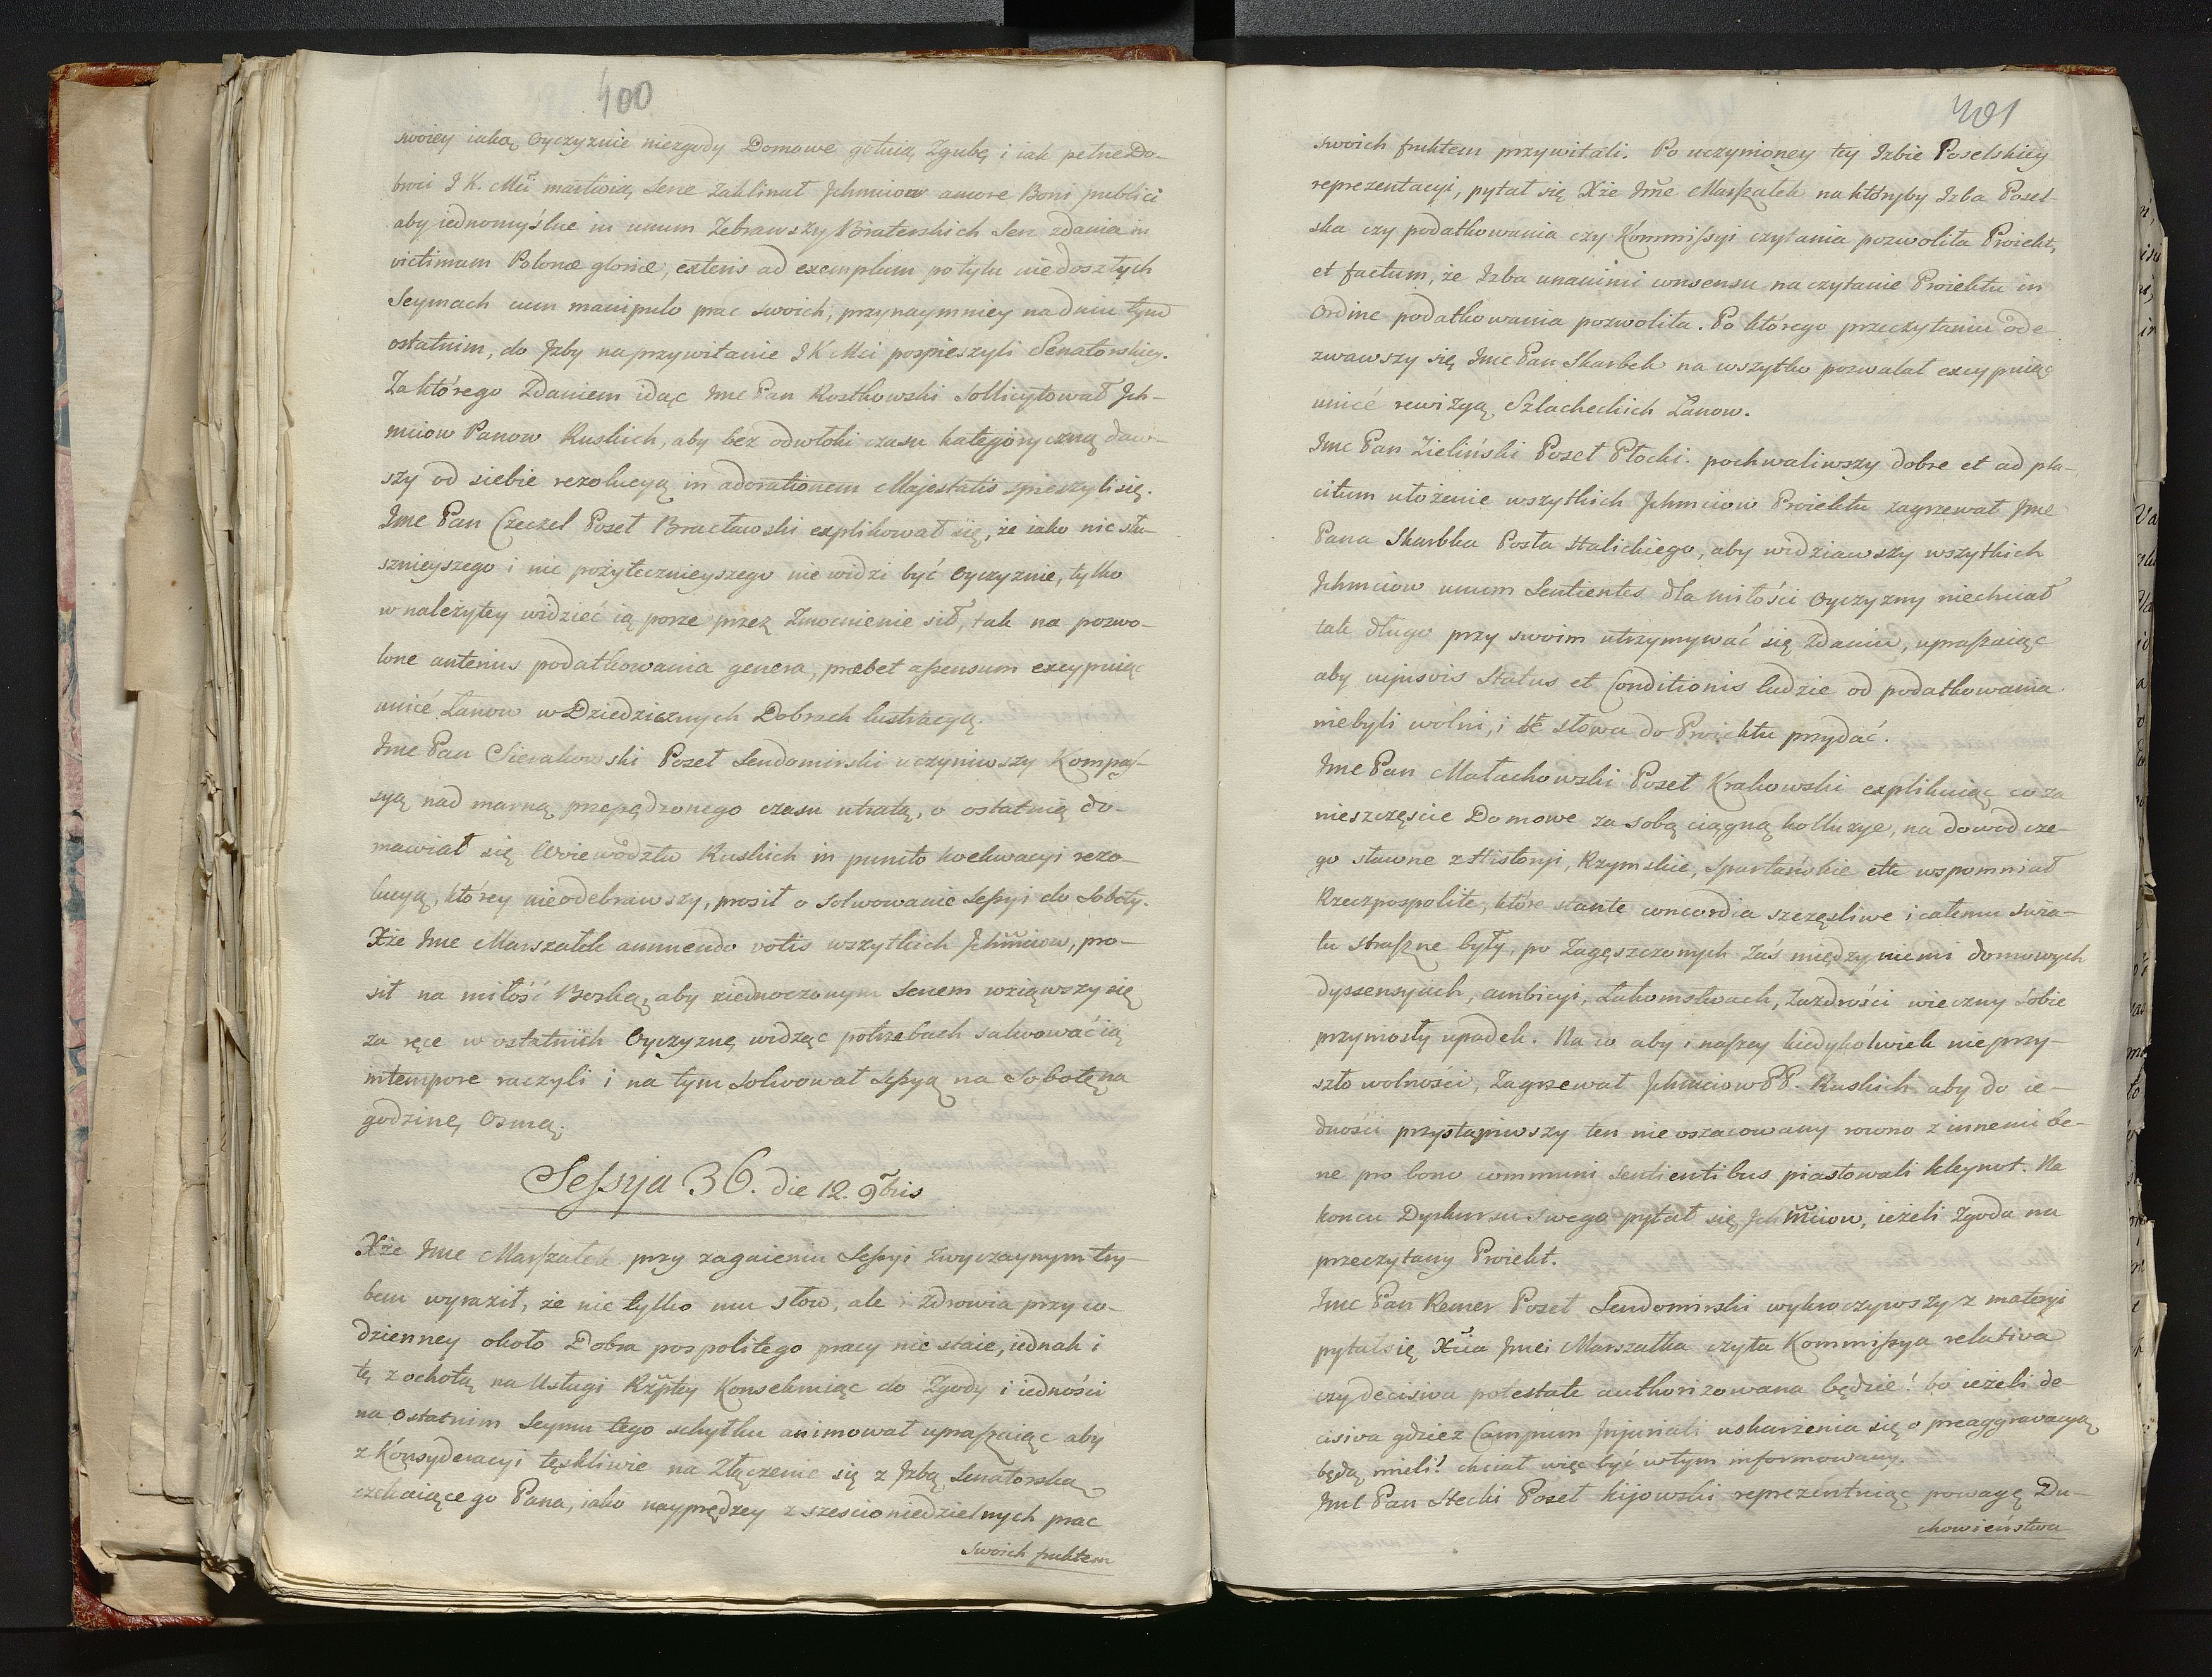 400
swoiey iaką Oyczyznie niezgody Domowe gotuią Zgubę i iak pełne Do-
broci J K. Mci martwią Serce Zaklinał Jchmciow amore Boni publici
aby iednomyślne in unum Zebrawszy Braterskich Serc zdania in
victimam Polonæ gloriæ, exteris ad exemplum po tylu niedoszłych
Seymach cum manipulo prac swoich, przynaymniey na dniu tym
ostatnim, do Jzby na przywitanie J K Mci pospieszyli Senatorskiey.
Za którego Zdaniem idąc Jmc Pan Rostkowski Sollicytował Jch-
mciow Panow Ruskich, aby bez odwłoki czasu kategoryczną daw-
szy od siebie rezolucyą in adorationem Majestatis spieszyli się.
Jmc Pan Czeczel Poseł Bracławski explikował się, że iako nic słu-
sznieyszego i nic pożytecznieyszego nie widzi być Oyczyznie, tylko
w należytey widzieć ią porze przez Zmocnienie sił, tak na pozwo-
lone anterius podatkowania genera, præbet assensum excypuiąc
unicé Łanow w Dziedzicznych Dobrach lustracyą.
Jmc Pan Sierakowski Poseł Sendomirski uczyniwszy Kompas-
syą nad marną przepędzonego czasu utratą, o ostatnią do-
mawiał się Woiewództw Ruskich in puncto koekwacyi rezo-
lucyą, którey nieodebrawszy, prosił o Solwowanie Sessyi do Soboty.
Xże Jmc Marszałek annuendo votis wszytkich Jchmciow, pro-
sił na miłość Boską, aby ziednoczonym Sercem wziąwszy się
za ręce w ostatnich Oyczyznę widząc potrzebach salwować ią
intempore raczyli i na tym Solwował Sessyą na Sobotę na
godzinę Osmą.
Sessyja 36. die 12. 9bris
Xże Jmc Marszałek przy zagaieniu Sessyi zwyczaynym try-
bem wyraził, że nie tylko mu słow, ale i Zdrowia przy co-
dzienney około Dobra pospolitego pracy nie staie, iednak i
tę z ochotą na Usługi Rzptey Konsekruiąc do Zgody i iedności
na ostatnim Seymu tego schyłku animował upraszaiąc aby
z Konsyderacyi tęskliwie na Złączenie się z Jzbą Senatorską
czekaiącego Pana, iako nayprędzey z sześcioniedzielnych prac
swoich fruktem
401
swoich fruktem przywitali. Po uczynioney tey Jzbie Poselskiey
reprezentacyi, pytał się Xże Jmc Marszałek na któryby Jzba Posel-
ska czy podatkowania czy Kommissyi czytania pozwoliła Proiekt,
et factum, że Jzba unanimi consensu na czytanie Proiektu in
Ordine podatkowania pozwoliła. Po którego przeczytaniu ode-
zwawszy się Jmc Pan Skarbek na wszytko pozwalał excypuiąc
unicé rewizyą Szlacheckich Łanow.
Jmc Pan Zieliński Poseł Płocki. pochwaliwszy dobre et ad pla-
citum ułożenie wszytkich Jchmciow Proiektu zagrzewał Jmc
Pana Skarbka Posła Halickiego, aby widziawszy wszytkich
Jchmciow unum Sentientes dla miłości Oyczyzny niechciał
tak długo przy swoim utrzymywać się Zdaniu, upraszaiąc
aby cujusvis Status et Conditionis ludzie od podatkowania
niebyli wolni, i te słowa do Proiektu przydać.
Jmc Pan Małachowski Poseł Krakowski explikuiąc co za
nieszczęscie Domowe za sobą ciągną kolluzye, na dowod cze-
go sławne z Historyi, Rzymskie, Spartańskie ettc wspomniał
Rzeczpospolite, które stante concordia szczęsliwe i całemu świa-
tu straszne były, po Zagęszczonych Zaś między niemi domowych
dyssensyach, ambicyi, Łakomstwach, Zazdrości wieczny sobie
przyniosły upadek. Na co aby i naszey kiedykolwiek nieprzy-
szło wolności, Zagrzewał Jchmciow PP. Ruskich aby do ie-
dności przystąpiwszy ten nieoszacowany rowno z innemi be-
ne pro bono communi sentientibus piastowali kleynot. Na
koncu Dyskursu swego pytał się Jchmciow, ieżeli Zgoda na
przeczytany Proiekt.
Jmc Pan Remer Poseł Sendomirski wykroczywszy z materyi
pytał się Xcia Jmci Marszałka czy ta Kommissya relativa
czy decisiva potestate authorizowana będzie! bo ieżeli de-
cisiva gdzież Campum Jnjuriati uskarżenia się o preaggrawacyą
będą mieli! chciał więc być w tym informowany.
Jmc Pan Stecki Poseł Kijowski reprezentuiąc powagę Du-
chowieństwa